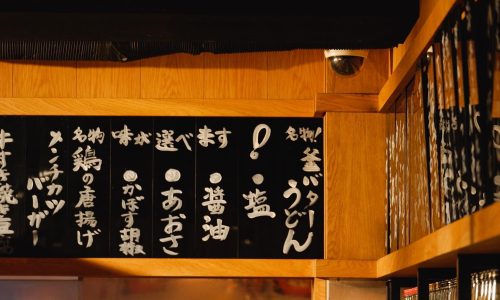 名物!釜バターうどん
味が選べます!
●塩
●醤油
●あおさ
●かぼす胡椒
名物鶏の唐揚げ
メンチカツバーガー
牛すき焼き